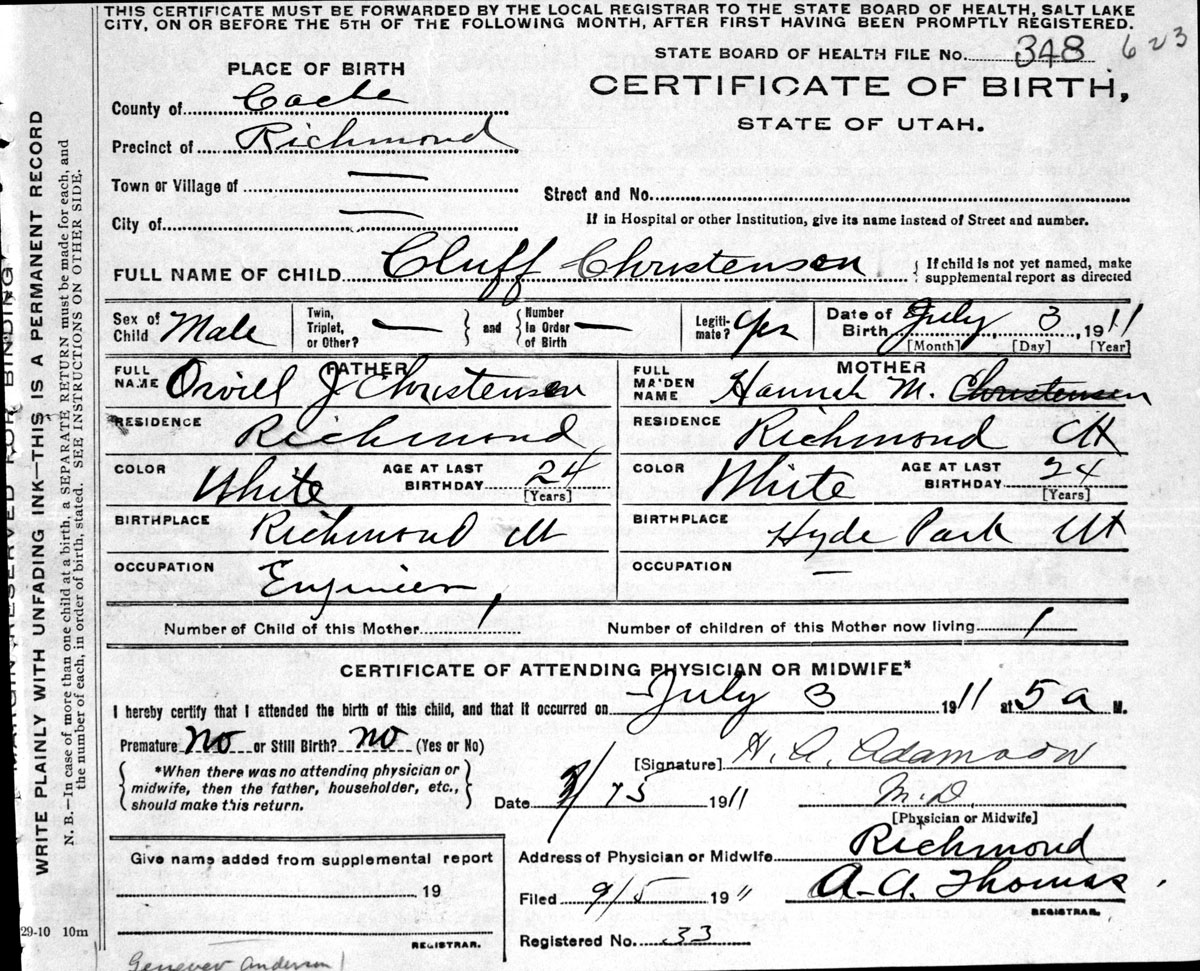 THIS CERTIFICATE MUST BE FORWARDED BY THE LOCAL REGISTRAR TO THE STATE BOARD OF HEALTH, SALT LAKE
CITY, ON OR BEFORE THE 5TH OF THE FOLLOWING MONTH, AFTER FIRST HAVING BEEN PROMPTLY REGISTERED.
STATE BOARD OF HEALTH FILE No. 348 623
CERTIFICATE OF BIRTH,
STATE OF UTAH.
PLACE OF BIRTH
County of Cache
Precinct of Richmond
Town or Village of —
Street and No.
City of —
If in Hospital or other Institution, give its name instead of Street and number.
FULL NAME OF CHILD Cluff Christenson { If child is not yet named, make
supplemental report as directed
Sex of Child Male
Twin, Triplet, or Other? — } and { Number in Order of Birth —
Legiti-mate? Yes
Date of Birth July 3, 1911
[Month] [Day] [Year]
FATHER
FULL NAME Orvill J Christenson
RESIDENCE Richmond
COLOR White AGE AT LAST BIRTHDAY 24 [Years]
BIRTHPLACE Richmond Ut
OCCUPATION Engineer
MOTHER
FULL MAIDEN NAME Hannah M. Christensen
RESIDENCE Richmond Ut
COLOR White AGE AT LAST BIRTHDAY 24 [Years]
BIRTHPLACE Hyde Park Ut
OCCUPATION —
Number of Child of this Mother 1
Number of children of this Mother now living 1
CERTIFICATE OF ATTENDING PHYSICIAN OR MIDWIFE*
I hereby certify that I attended the birth of this child, and that it occurred on July 3 1911 at 5 a M.
Premature no or Still Birth? no (Yes or No)
{ *When there was no attending physician or
midwife, then the father, householder, etc.,
should make this return. }
[Signature] H. A. Adamson
M.D.
[Physician or Midwife]
Date 1911
Address of Physician or Midwife Richmond
Filed 9/5 1911 A. A. Thomas
REGISTRAR.
Registered No. 33
Give name added from supplemental report
19
REGISTRAR.
29-10 10m
Genever Anderson
MARGIN RESERVED FOR BINDING
WRITE PLAINLY WITH UNFADING INK—THIS IS A PERMANENT RECORD
N. B.—In case of more than one child at a birth, a SEPARATE RETURN must be made for each, and
the number of each, in order of birth, stated. SEE INSTRUCTIONS ON OTHER SIDE.